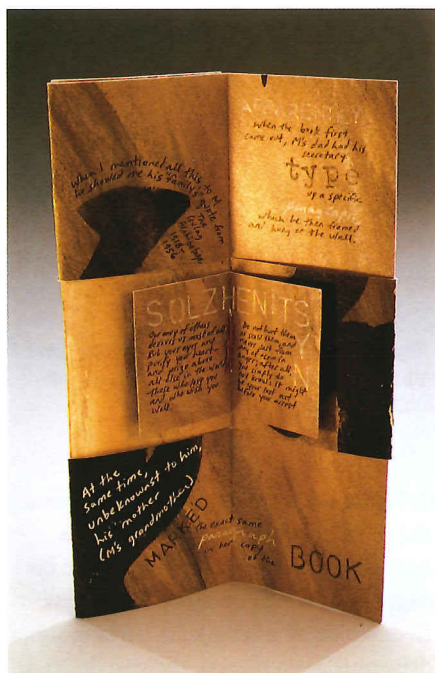 When I mentioned all this to M,
he showed me his family's quote from
The
Gulag
Archipelago
1918-
1956
APPARENTLY
when the book first
came out, M's dad had his
secretary
type
up a specific
paragraph
which he then framed
and hung on the wall.
SOLZHENITSYN
Our envy of others
devours us most of all.
Rub your eyes and
purify your heart-
and prize above
all else in the world
those who love you
and who wish you
well.
Do not hurt them
or scold them, and
never part from
any of them in
anger; after all,
you simply do
not know: it might
be your last act
before your arrest
At the
same time,
unbeknownst to him,
his mother
(M's grandmother)
MARKED
the exact same
paragraph
in her copy
of the
BOOK